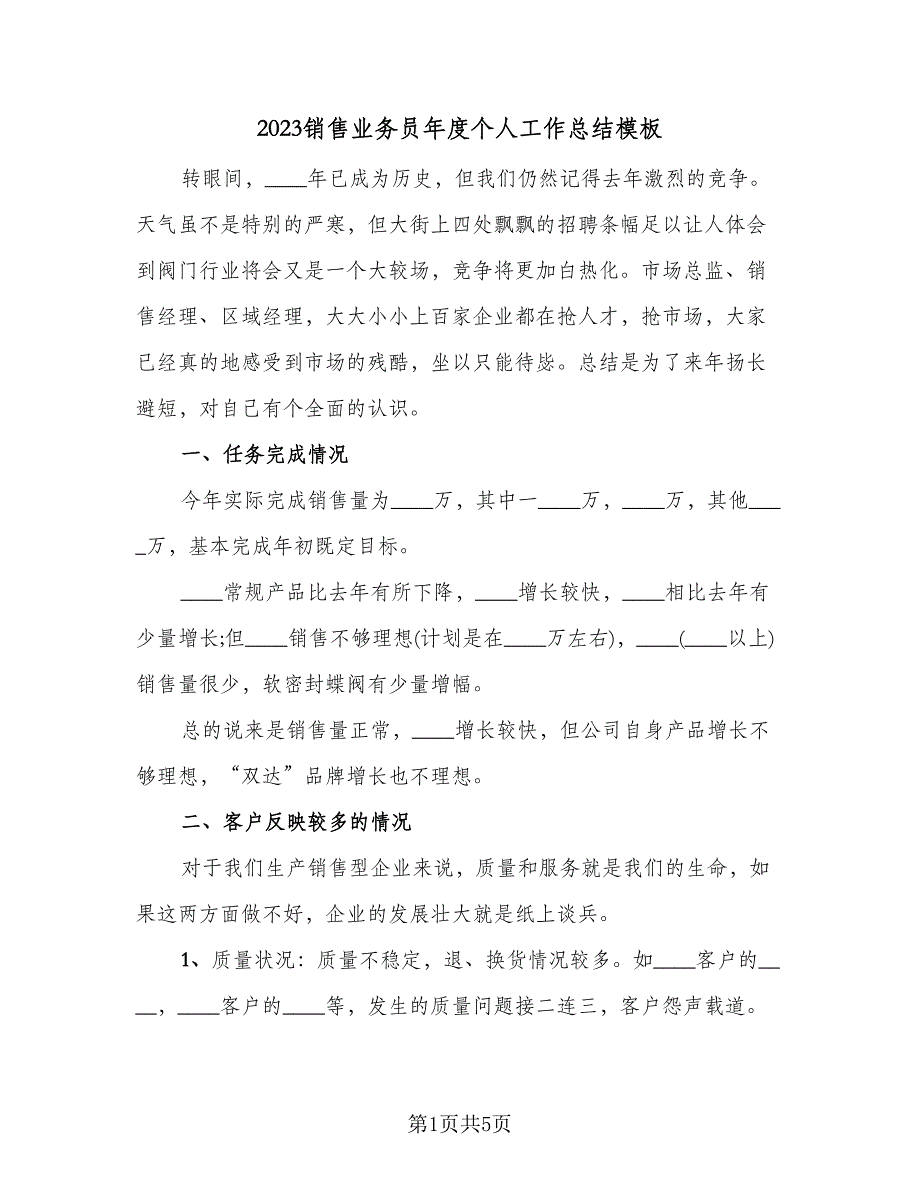 2023销售业务员年度个人工作总结模板
转眼间，____年已成为历史，但我们仍然记得去年激烈的竞争。
天气虽不是特别的严寒，但大街上四处飘飘的招聘条幅足以让人体会
到阀门行业将会又是一个大较场，竞争将更加白热化。市场总监、销
售经理、区域经理，大大小小上百家企业都在抢人才，抢市场，大家
已经真的地感受到市场的残酷，坐以只能待毙。总结是为了来年扬长
避短，对自己有个全面的认识。
一、任务完成情况
今年实际完成销售量为____万，其中一____万，____万，其他___
_万，基本完成年初既定目标。
____常规产品比去年有所下降，____增长较快，____相比去年有
少量增长;但____销售不够理想(计划是在____万左右)，____(____以上)
销售量很少，软密封蝶阀有少量增幅。
总的说来是销售量正常，____增长较快，但公司自身产品增长不
够理想，“双达”品牌增长也不理想。
二、客户反映较多的情况
对于我们生产销售型企业来说，质量和服务就是我们的生命，如
果这两方面做不好，企业的发展壮大就是纸上谈兵。
1、质量状况：质量不稳定，退、换货情况较多。如____客户的__
__，____客户的____等，发生的质量问题接二连三，客户怨声载道。
第1页共5页